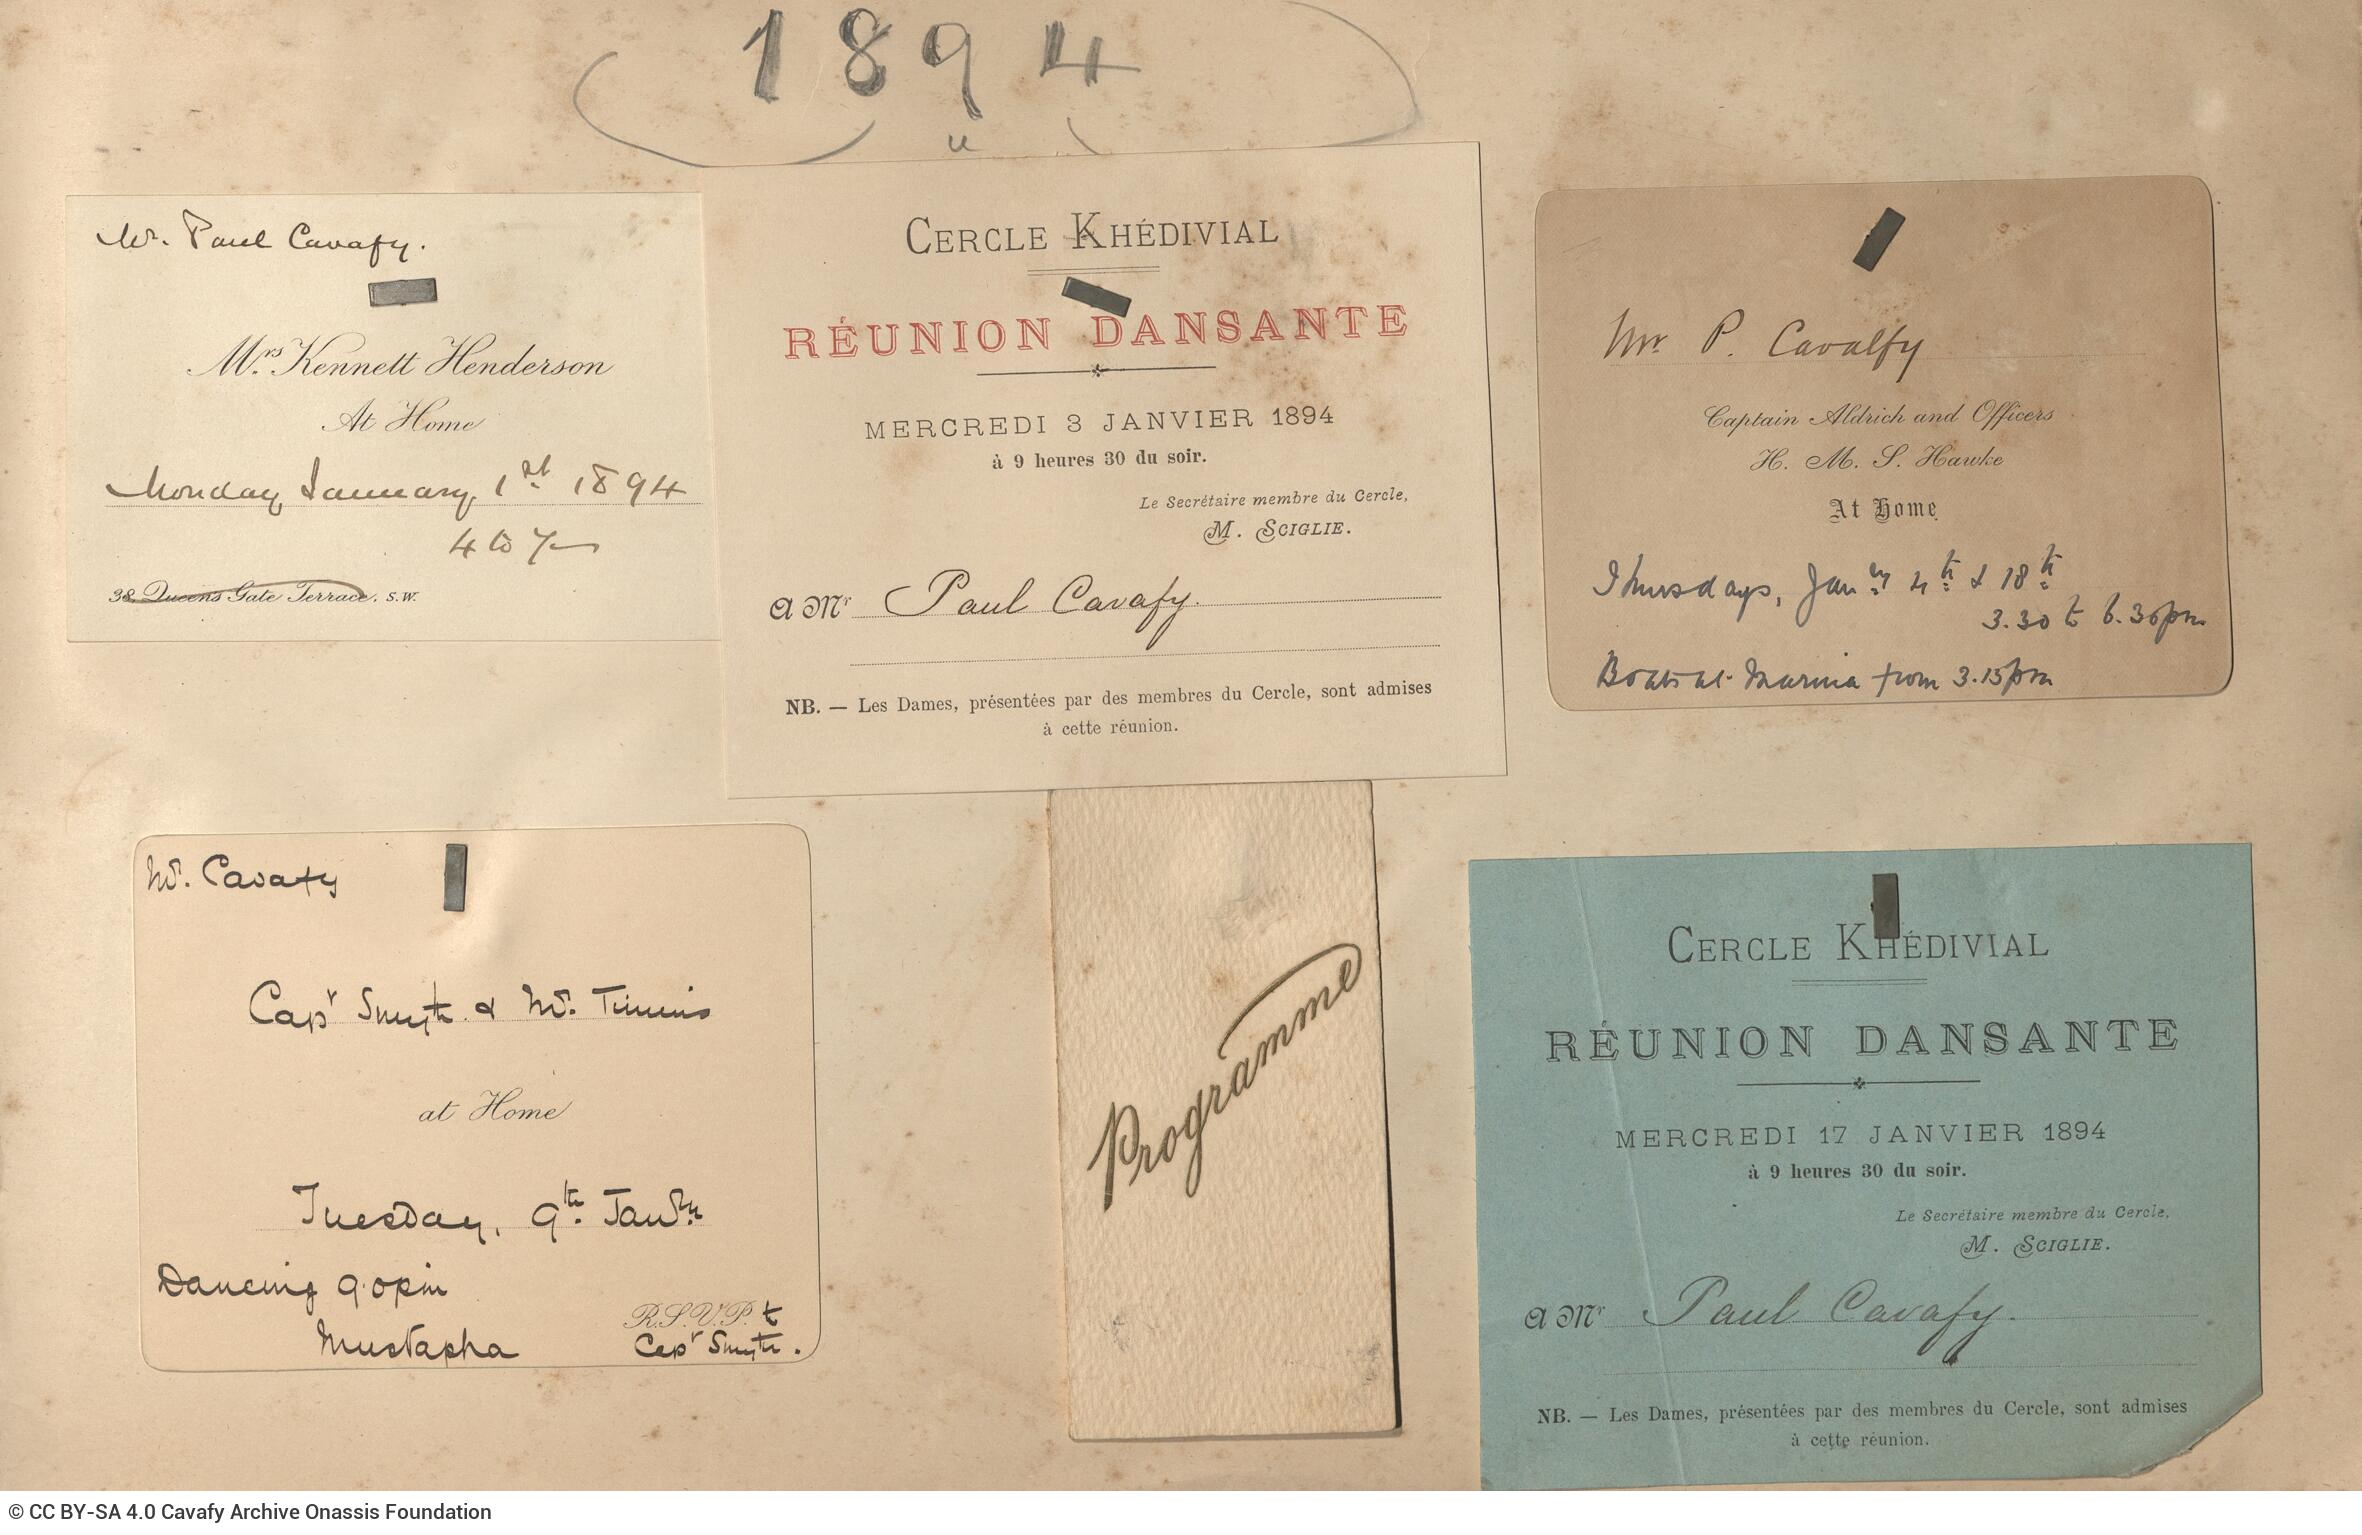 1894
Mr. Paul Cavafy.
Mrs. Kennett Henderson
At Home
Monday January 1st 1894
4 to 7
38. Queens Gate Terrace. S.W.
CERCLE KHÉDIVIAL
RÉUNION DANSANTE
MERCREDI 3 JANVIER 1894
à 9 heures 30 du soir.
Le Secrétaire membre du Cercle,
M. SCIGLIE.
A Mr Paul Cavafy.
NB. — Les Dames, présentées par des membres du Cercle, sont admises
à cette réunion.
Mr P. Cavalfy
Captain Aldrich and Officers
H. M. S. Hawke
At Home
Thursdays, Jany 4th & 18th
3.30 to 6.30pm
Boats at Marina from 3.15pm
Mr. Cavafy
Capt Smyth & Mr. Timmis
at Home
Tuesday, 9th Jany
Dancing 9.0pm
Mustapha
R.S.V.P. to
Capt Smyth.
Programme
CERCLE KHÉDIVIAL
RÉUNION DANSANTE
MERCREDI 17 JANVIER 1894
à 9 heures 30 du soir.
Le Secrétaire membre du Cercle,
M. SCIGLIE.
A Mr Paul Cavafy.
NB. — Les Dames, présentées par des membres du Cercle, sont admises
à cette réunion.
© CC BY-SA 4.0 Cavafy Archive Onassis Foundation